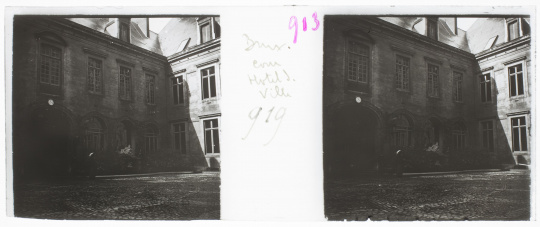 913
Cour
Hotel d.
Ville
919